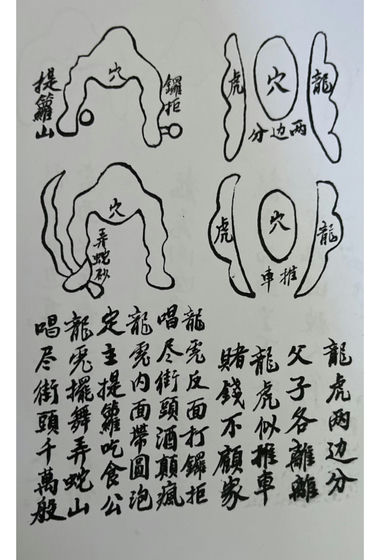 龍
穴
虎
两边分
穴
鑼拒
提籮山
龍
穴
虎
推車
穴
弄蛇砂
龍虎两边分
父子各離離
龍虎似推車
賭錢不顧家
龍虎反面打鑼拒
唱尽街頭酒顛瘋
龍虎内面帶圓泡
定主提籮吃食公
龍虎擺舞弄蛇山
唱尽街頭千萬般